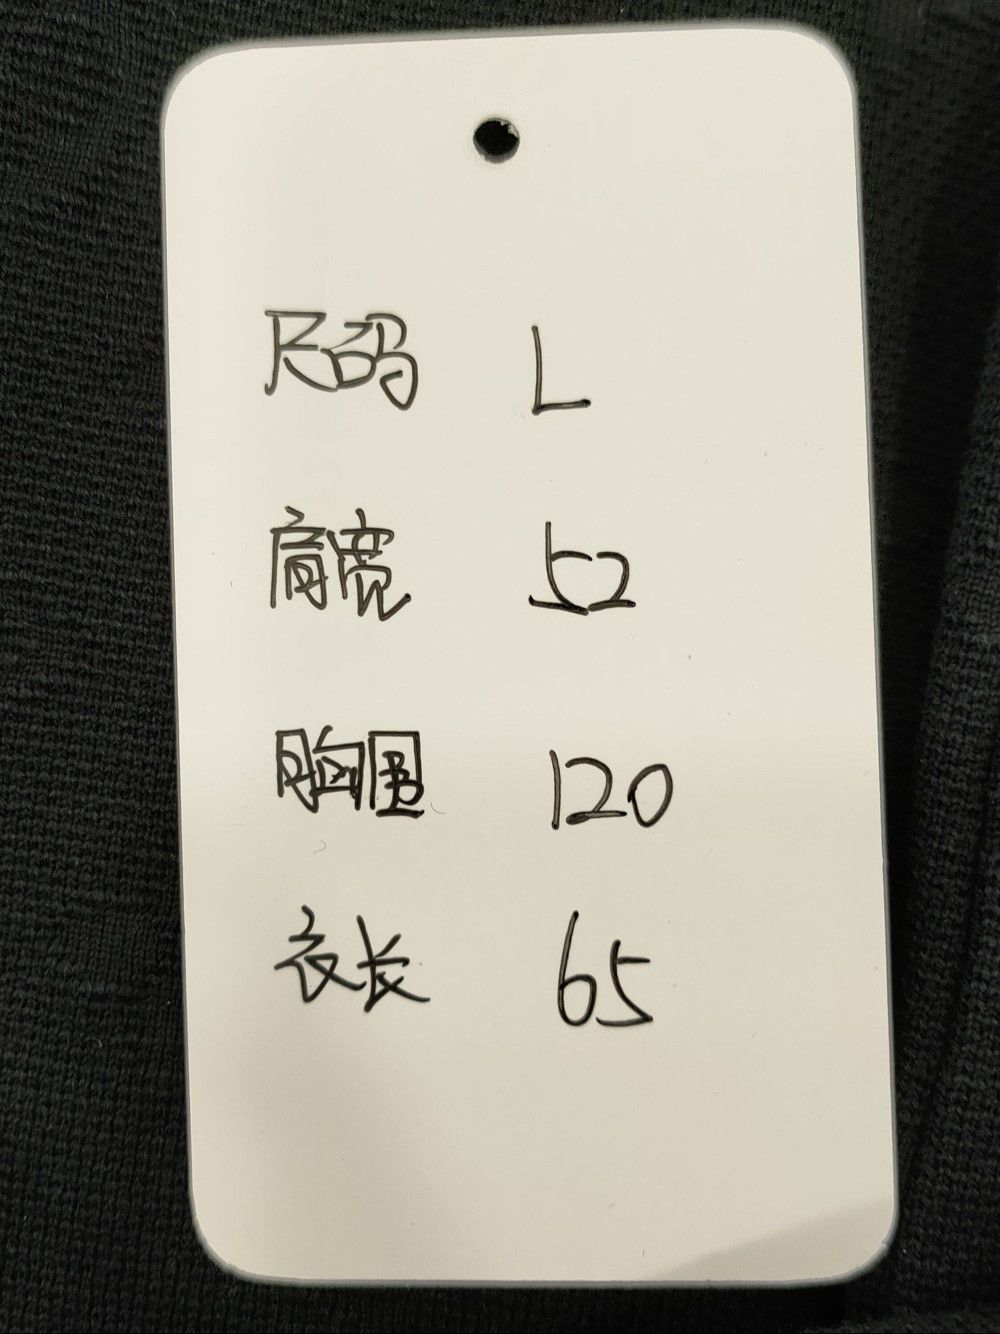 尺码 L
肩宽 52
胸围 120
衣长 65